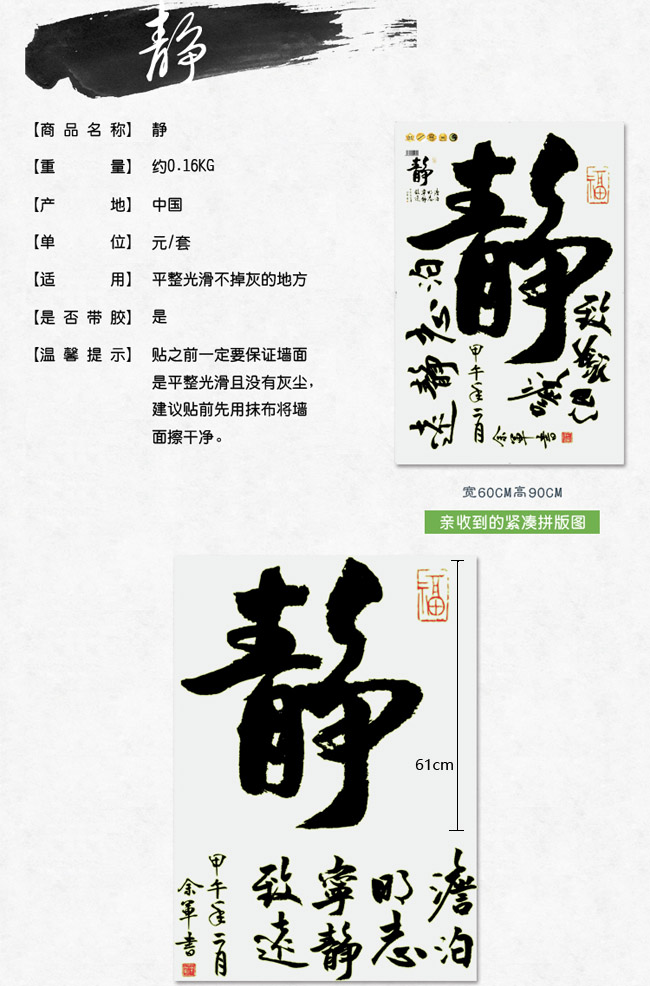 静
【商品名称】 静
【重量】 约0.16KG
【产地】 中国
【单位】 元/套
【适用】 平整光滑不掉灰的地方
【是否带胶】 是
【温馨提示】 贴之前一定要保证墙面
是平整光滑且没有灰尘，
建议贴前先用抹布将墙
面擦干净。
福
静
静
泊
志
静
远
致
甲午年二月
余军書
宽60CM高90CM
亲收到的紧凑拼版图
福
静
61cm
澹泊
明志
寧静
致远
甲午年二月
余軍書